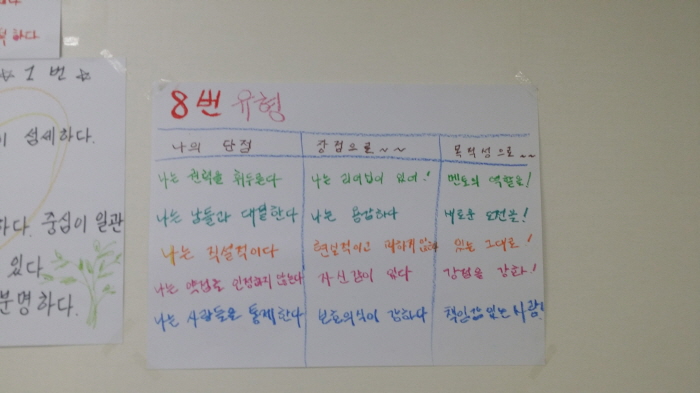 하다
☆ 1 번 ☆
이 섬세하다.
하다. 중심이 일관
있다.
분명하다.
8번 유형
나의 단점 강점으로~~ 목적성으로~~
나는 권력을 휘두른다 나는 리더십이 있어! 멘토의 역할을!
나는 남들과 대결한다 나는 용감하다 새로운 도전을!
나는 직설적이다 현실적이고 피하지 않아 있는 그대로!
나는 약점을 인정하지 않는다 자신감이 있다 강점을 강화!
나는 사람들을 통제한다 보호의식이 강하다 책임감 있는 사람!